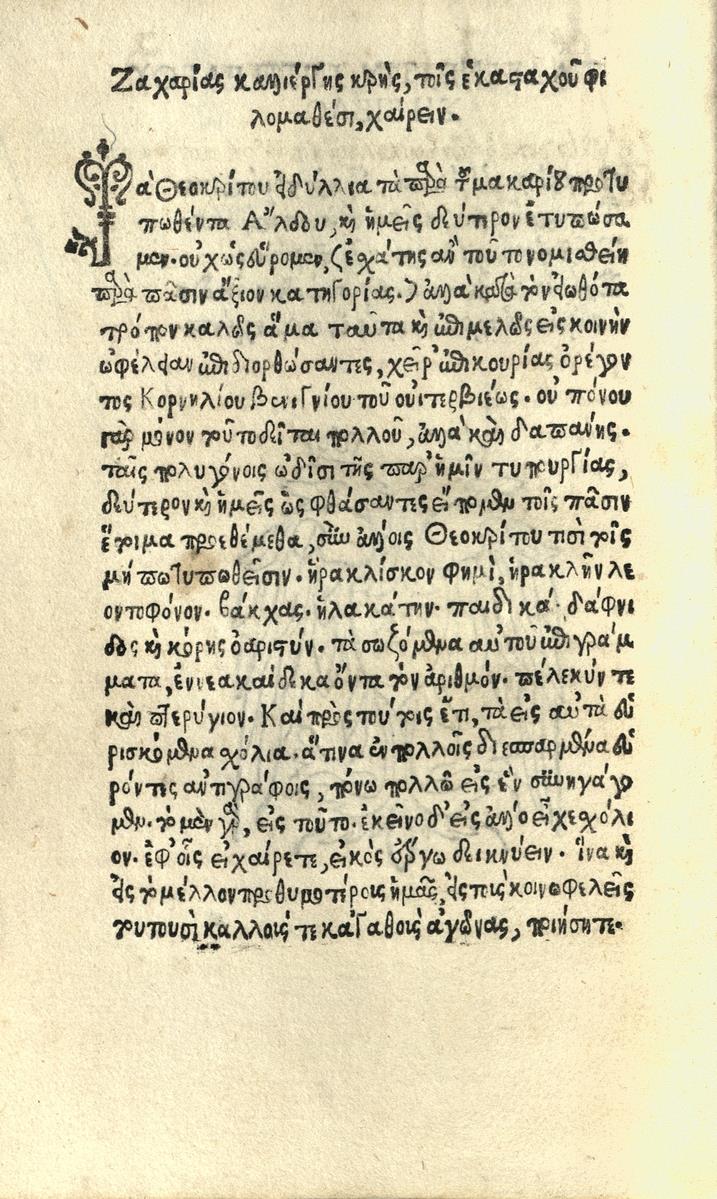 Ζαχαρίας καλλιέργης κρὴς, τοῖς ἑκασταχοῦ φι
λομαθέσι, χαίρειν.
Τὰ Θεοκρίτου εἰδύλλια τὰ παρὰ τοῦ μακαρίου προτυ
πωθέντα Ἄλδου, καὶ ἡμεῖς δεύτερον ἐτυπώσα
μεν. οὐχ ὡς
παρὰ πᾶσιν ἄξιον κατηγορίας. ἀλλὰ κατὰ τὸν εἰωθότα
τρόπον καλῶς ἅμα ταῦτα καὶ ἐπιμελῶς εἰς κοινὴν
ὠφέλειαν ἐπιδιορθώσαντες, χεῖρ' ἐπικουρίας ὀρέγον
τος Κορνηλίου Βενιγνίου τοῦ οὐιτερβιέως. οὐ πόνου
γὰρ μόνον τοῦτο δεῖται πολλοῦ, ἀλλὰ καὶ δαπάνης.
ταῖς πολυγόνοις ὠδῖσι τῆς παρ' ἡμῖν τυπουργίας,
δεύτερον καὶ ἡμεῖς ὡς φθάσαντες εἴπομεν τοῖς πᾶσιν
ἕτοιμα προεθέμεθα, σὺν ἄλλοις Θεοκρίτου τισὶ τοῖς
μὴ πω τυπωθεῖσιν. ἡρακλίσκον φημὶ, ἡρακλῆν λε
οντοφόνον. βάκχας. ἠλακάτην. παιδικά. δάφνι
δος καὶ κόρης ὀαριστύν. τὰ σωζόμενα αὐτοῦ ἐπιγράμ
ματα, ἐννεακαίδεκα ὄντα τὸν ἀριθμόν. πέλεκύν τε
καὶ πτερύγιον. Καὶ πρὸς τούτοις ἔτι, τὰ εἰς αὐτὰ εὑ
ρισκόμενα σχόλια. ἅτινα ἐν πολλοῖς διεσπαρμένα εὑ
ρόντες ἀντιγράφοις, πόνω πολλῶ εἰς ἓν συνηγάγο
μεν. τὸ μὲν γὰρ, εἰς τοῦτο. ἐκεῖνο δ' εἰς ἄλλο εἶχε σχόλι
ον. ἐφ' οἷς εἰ χαίρετε, εἰκὸς ἔργω δεικνύειν. ἵνα καὶ
εἰς τὸ μέλλον προθυμοτέροις ἡμᾶς, εἰς τοὺς κοινωφελεῖς
τουτουσὶ καλλοίς τε κἀγαθοὶς ἀγῶνας, ποιήσητε.